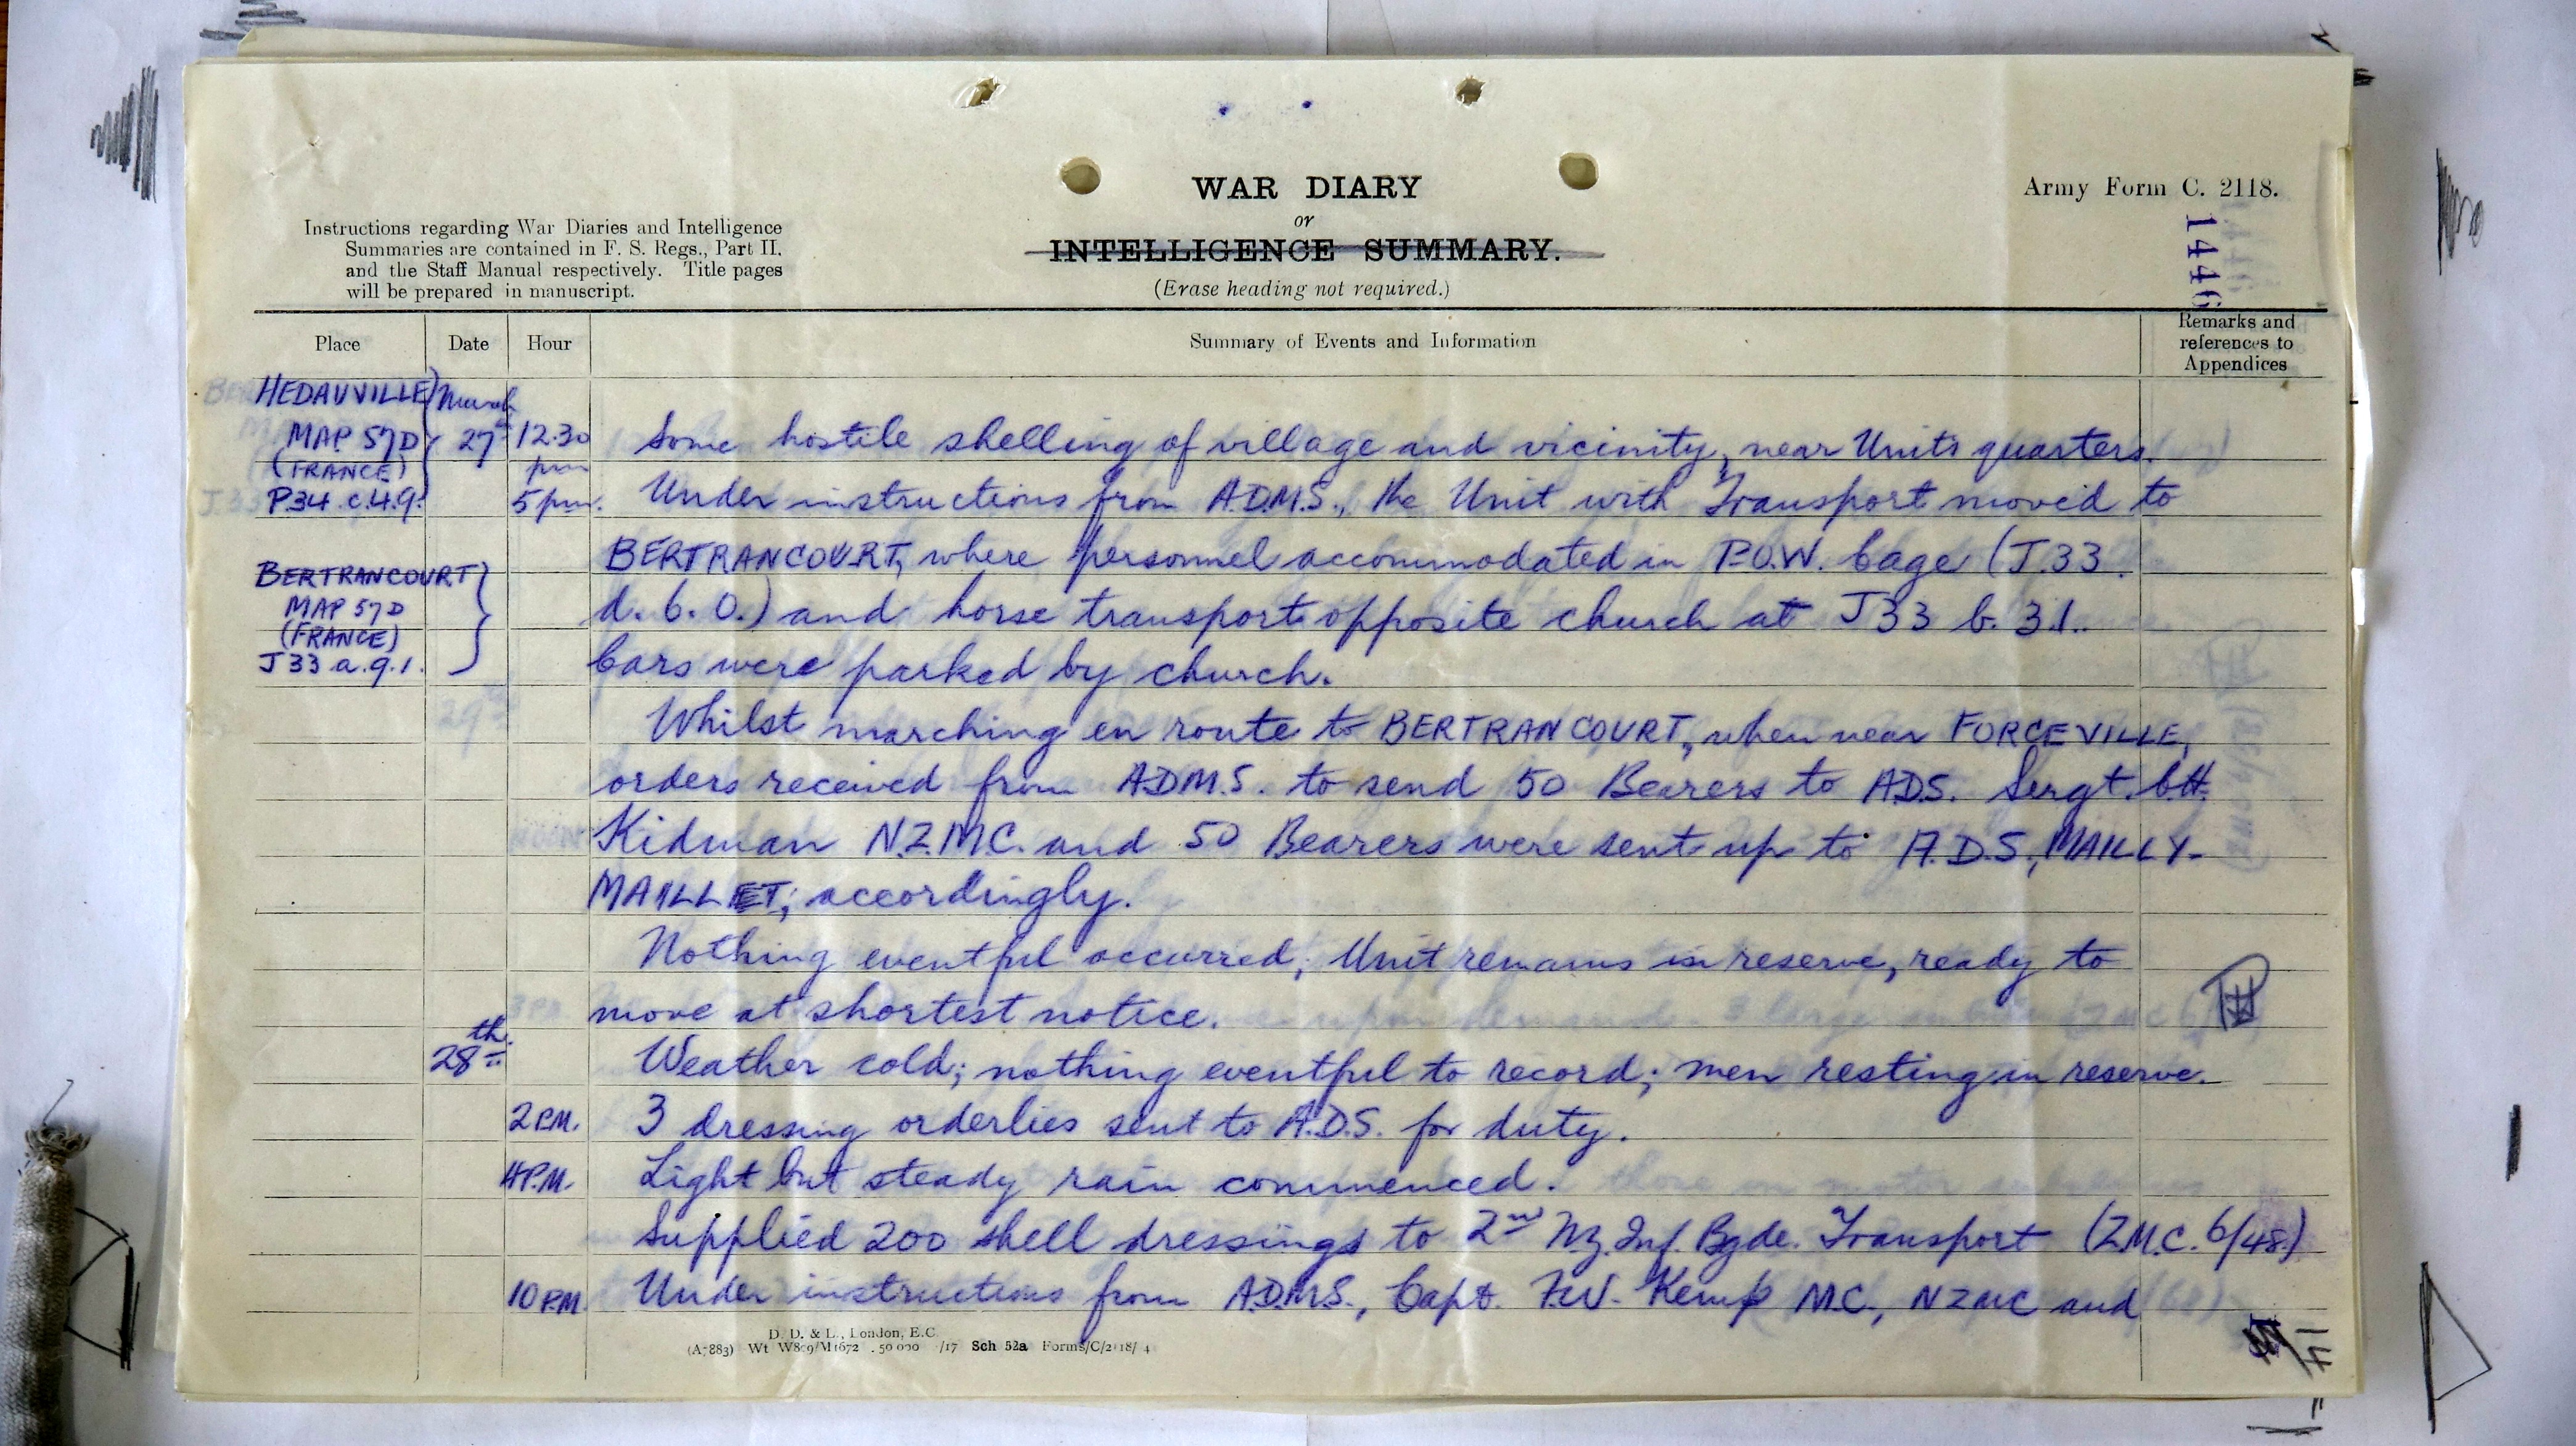 WAR DIARY
or
INTELLIGENCE SUMMARY.
(Erase heading not required.)
Army Form C. 2118.
1446
Instructions regarding War Diaries and Intelligence
Summaries are contained in F. S. Regs., Part II.
and the Staff Manual respectively. Title pages
will be prepared in manuscript.
Place Date Hour Summary of Events and Information Remarks and
references to
Appendices
HEDAUVILLE March
MAP 57D 27th 12.30 Some hostile shelling of village and vicinity, near Units quarters.
(FRANCE) pm
P.34.c.4.9. 5 pm. Under instructions from A.D.M.S., the Unit with Transport moved to
BERTRANCOURT, where personnel accommodated in P.O.W. Cage (J.33.
BERTRANCOURT
MAP 57D d. 6. 0.) and horse transport opposite church at J33 b. 3.1..
(FRANCE)
J 33 a.9.1. Cars were parked by church.
Whilst marching en route to BERTRANCOURT, when near FORCEVILLE,
orders received from A.D.M.S. to send 50 Bearers to A.D.S. Sergt. C.H.
Kidman N.Z.M.C. and 50 Bearers were sent up to A.D.S., MAILLY-
MAILLET; accordingly.
Nothing eventful occurred; Unit remains in reserve, ready to
move at shortest notice.
28th. Weather cold; nothing eventful to record; men resting in reserve.
2 P.M. 3 dressing orderlies sent to A.D.S. for duty.
4 P.M. Light but steady rain commenced.
Supplied 200 shell dressings to 2nd N.Z. Inf. Bgde. Transport (Z.M.C. 6/48.)
10 P.M. Under instructions from A.D.M.S., Capt. F.W. Kemp M.C., NZMC and
D. D. & L., London, E.C.
(A7883) Wt W809/M1672 50,000 /17 Sch 52a Forms/C/2118/14